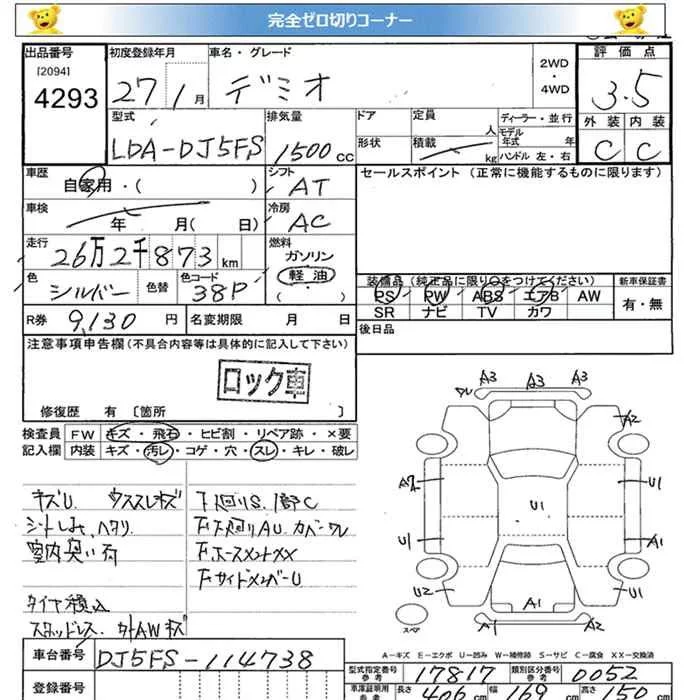 完全ゼロ切りコーナー
出品番号 初度登録年月 車名・グレード 評価点
[2094]
4293 27 1月 デミオ 2WD・4WD 3.5
型式 排気量 ドア 定員 人 ディーラー・並行 外装 内装
LDA-DJ5FS 1500cc 形状 積載 kg モデル年式 年 ハンドル 左・右 C C
車歴 シフト セールスポイント (正常に機能するものに限ります)
自家用・( ) AT
車検 冷房
年 月( 日) AC
走行 燃料
26万2千873km ガソリン
軽油
色 色替 色コード
シルバー 38P ( )
装備品 (純正品に限り○をつけてください) 新車保証書
PS PW ABS エアB AW 有・無
SR ナビ TV カワ
R券 9,130円 名変期限 月 日 後日品
注意事項申告欄(不具合内容等は具体的に記入して下さい)
ロック車
修復歴 有 〔箇所 〕
検査員 FW キズ・飛石・ヒビ割・リペア跡・×要
記入欄 内装 キズ・汚レ・コゲ・穴・スレ・キレ・破レ
キズU ウススレキズ
シートしみ、ヘタリ
室内臭い有
タイヤ積込
スタッドレス 外AWキズ
下廻りS、1部C
F下廻りAU、カバーワレ
FホースメントXX
FサイドメンバーU
ワレ A3 A3 A3
A2
A2 U1
U1
U1 A1
U2
A1
A1 A2
スペア
A-キズ E-エクボ U-凹み W-補修跡 S-サビ C-腐食 XX-交換済
車台番号 DJ5FS-114738
登録番号
型式指定番号 参考 17817 類別区分番号 参考 0052
車庫証明用 参考 長さ 406cm 幅 169cm 高さ 150cm